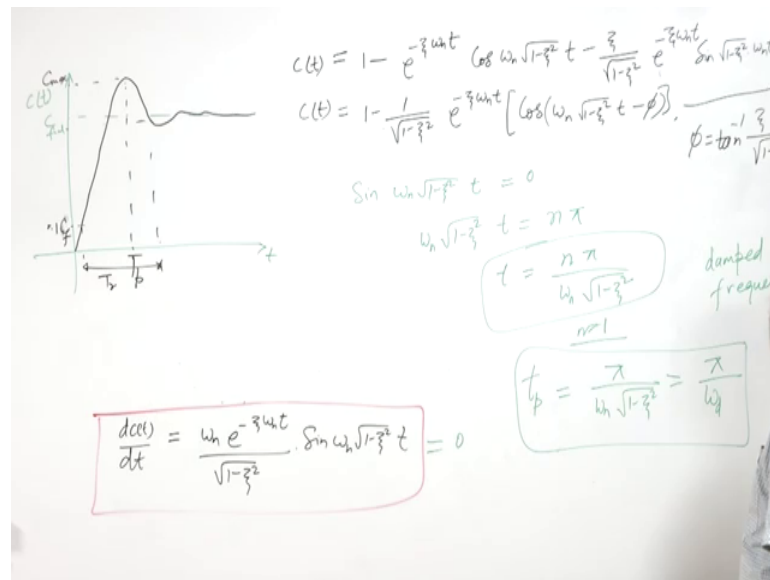 C(t) = 1 - e^{-ξωnt} Cos ωn√(1-ξ²) t - ξ/√(1-ξ²) e^{-ξωnt} Sin √(1-ξ²) ωnt
C(t) = 1 - 1/√(1-ξ²) e^{-ξωnt} [Cos(ωn√(1-ξ²) t - ϕ)].
ϕ = tan⁻¹ ξ/√1-
C(t)
t
Tr
Tp
Sin ωn√(1-ξ²) t = 0
ωn√(1-ξ²) t = nπ
t = nπ/(ωn√(1-ξ²))
damped
freque
n=1
tp = π/(ωn√(1-ξ²)) = π/ωd
dc(t)/dt = ωn e^{-ξωnt}/√(1-ξ²) . Sin ωn√(1-ξ²) t = 0